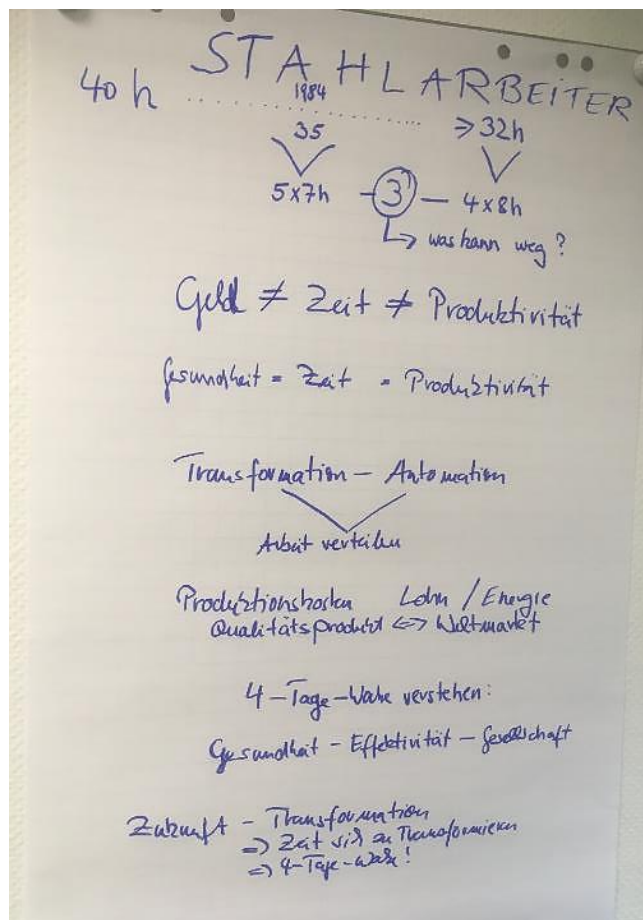 STAHLARBEITER
40h 1984
35 => 32h
5x7h - 3 - 4x8h
was kann weg?
Geld ≠ Zeit ≠ Produktivität
Gesundheit = Zeit = Produktivität
Transformation - Automation
Arbeit verteilen
Produktionskosten Lohn / Energie
Qualitätsprodukt <=> Weltmarkt
4-Tage-Woche verstehen:
Gesundheit - Effektivität - Gesellschaft
Zukunft - Transformation
=> Zeit sich zu Transformieren
=> 4-Tage-Woche!